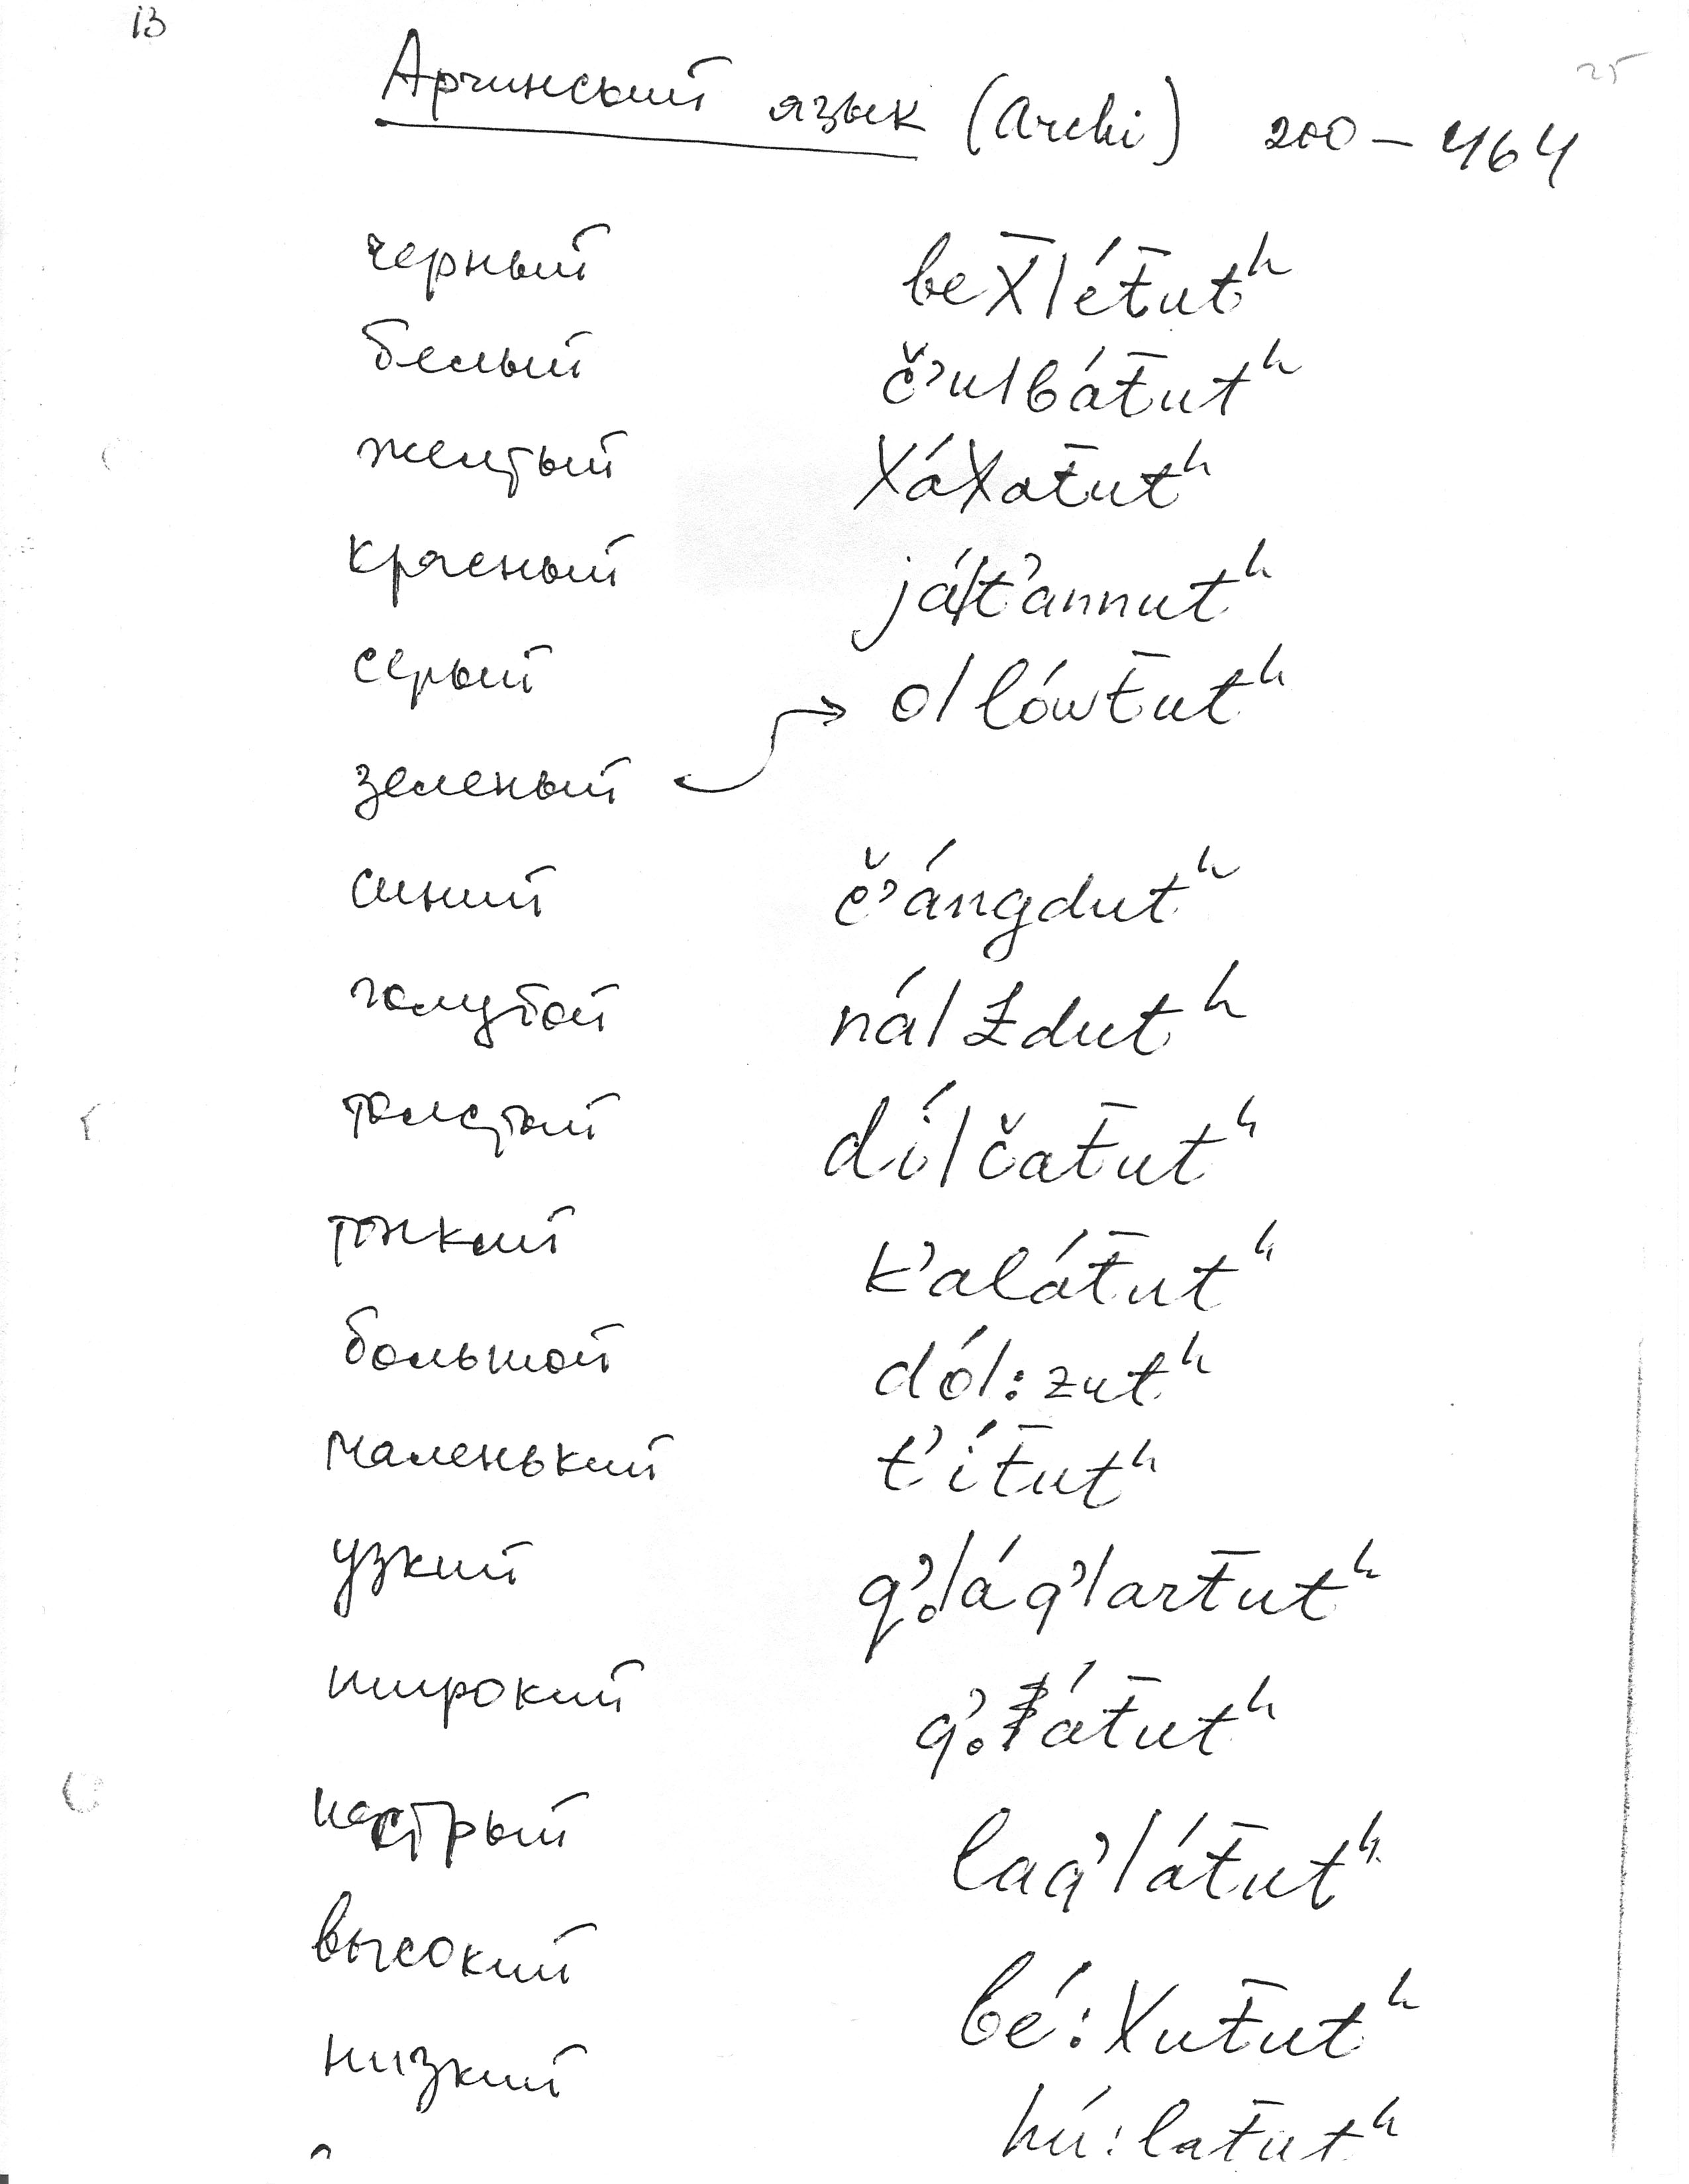 13
25
Арчинский язык (Archi) 200–464
черный beX̄|ét̄utʰ
белый č’u|bát̄utʰ
желтый XáXat̄utʰ
красный já|t’annutʰ
серый o|lówt̄utʰ
зеленый
синий č’ángdutʰ
голубой ná|ƛdutʰ
толстый dí|čat̄utʰ
тонкий k’alát̄utʰ
большой dó|:zutʰ
маленький t’ít̄utʰ
узкий q̇’|áq’|art̄utʰ
широкий át̄utʰ
пестрый laq’|át̄utʰ
высокий bé:Xut̄utʰ
низкий hú:lat̄utʰ